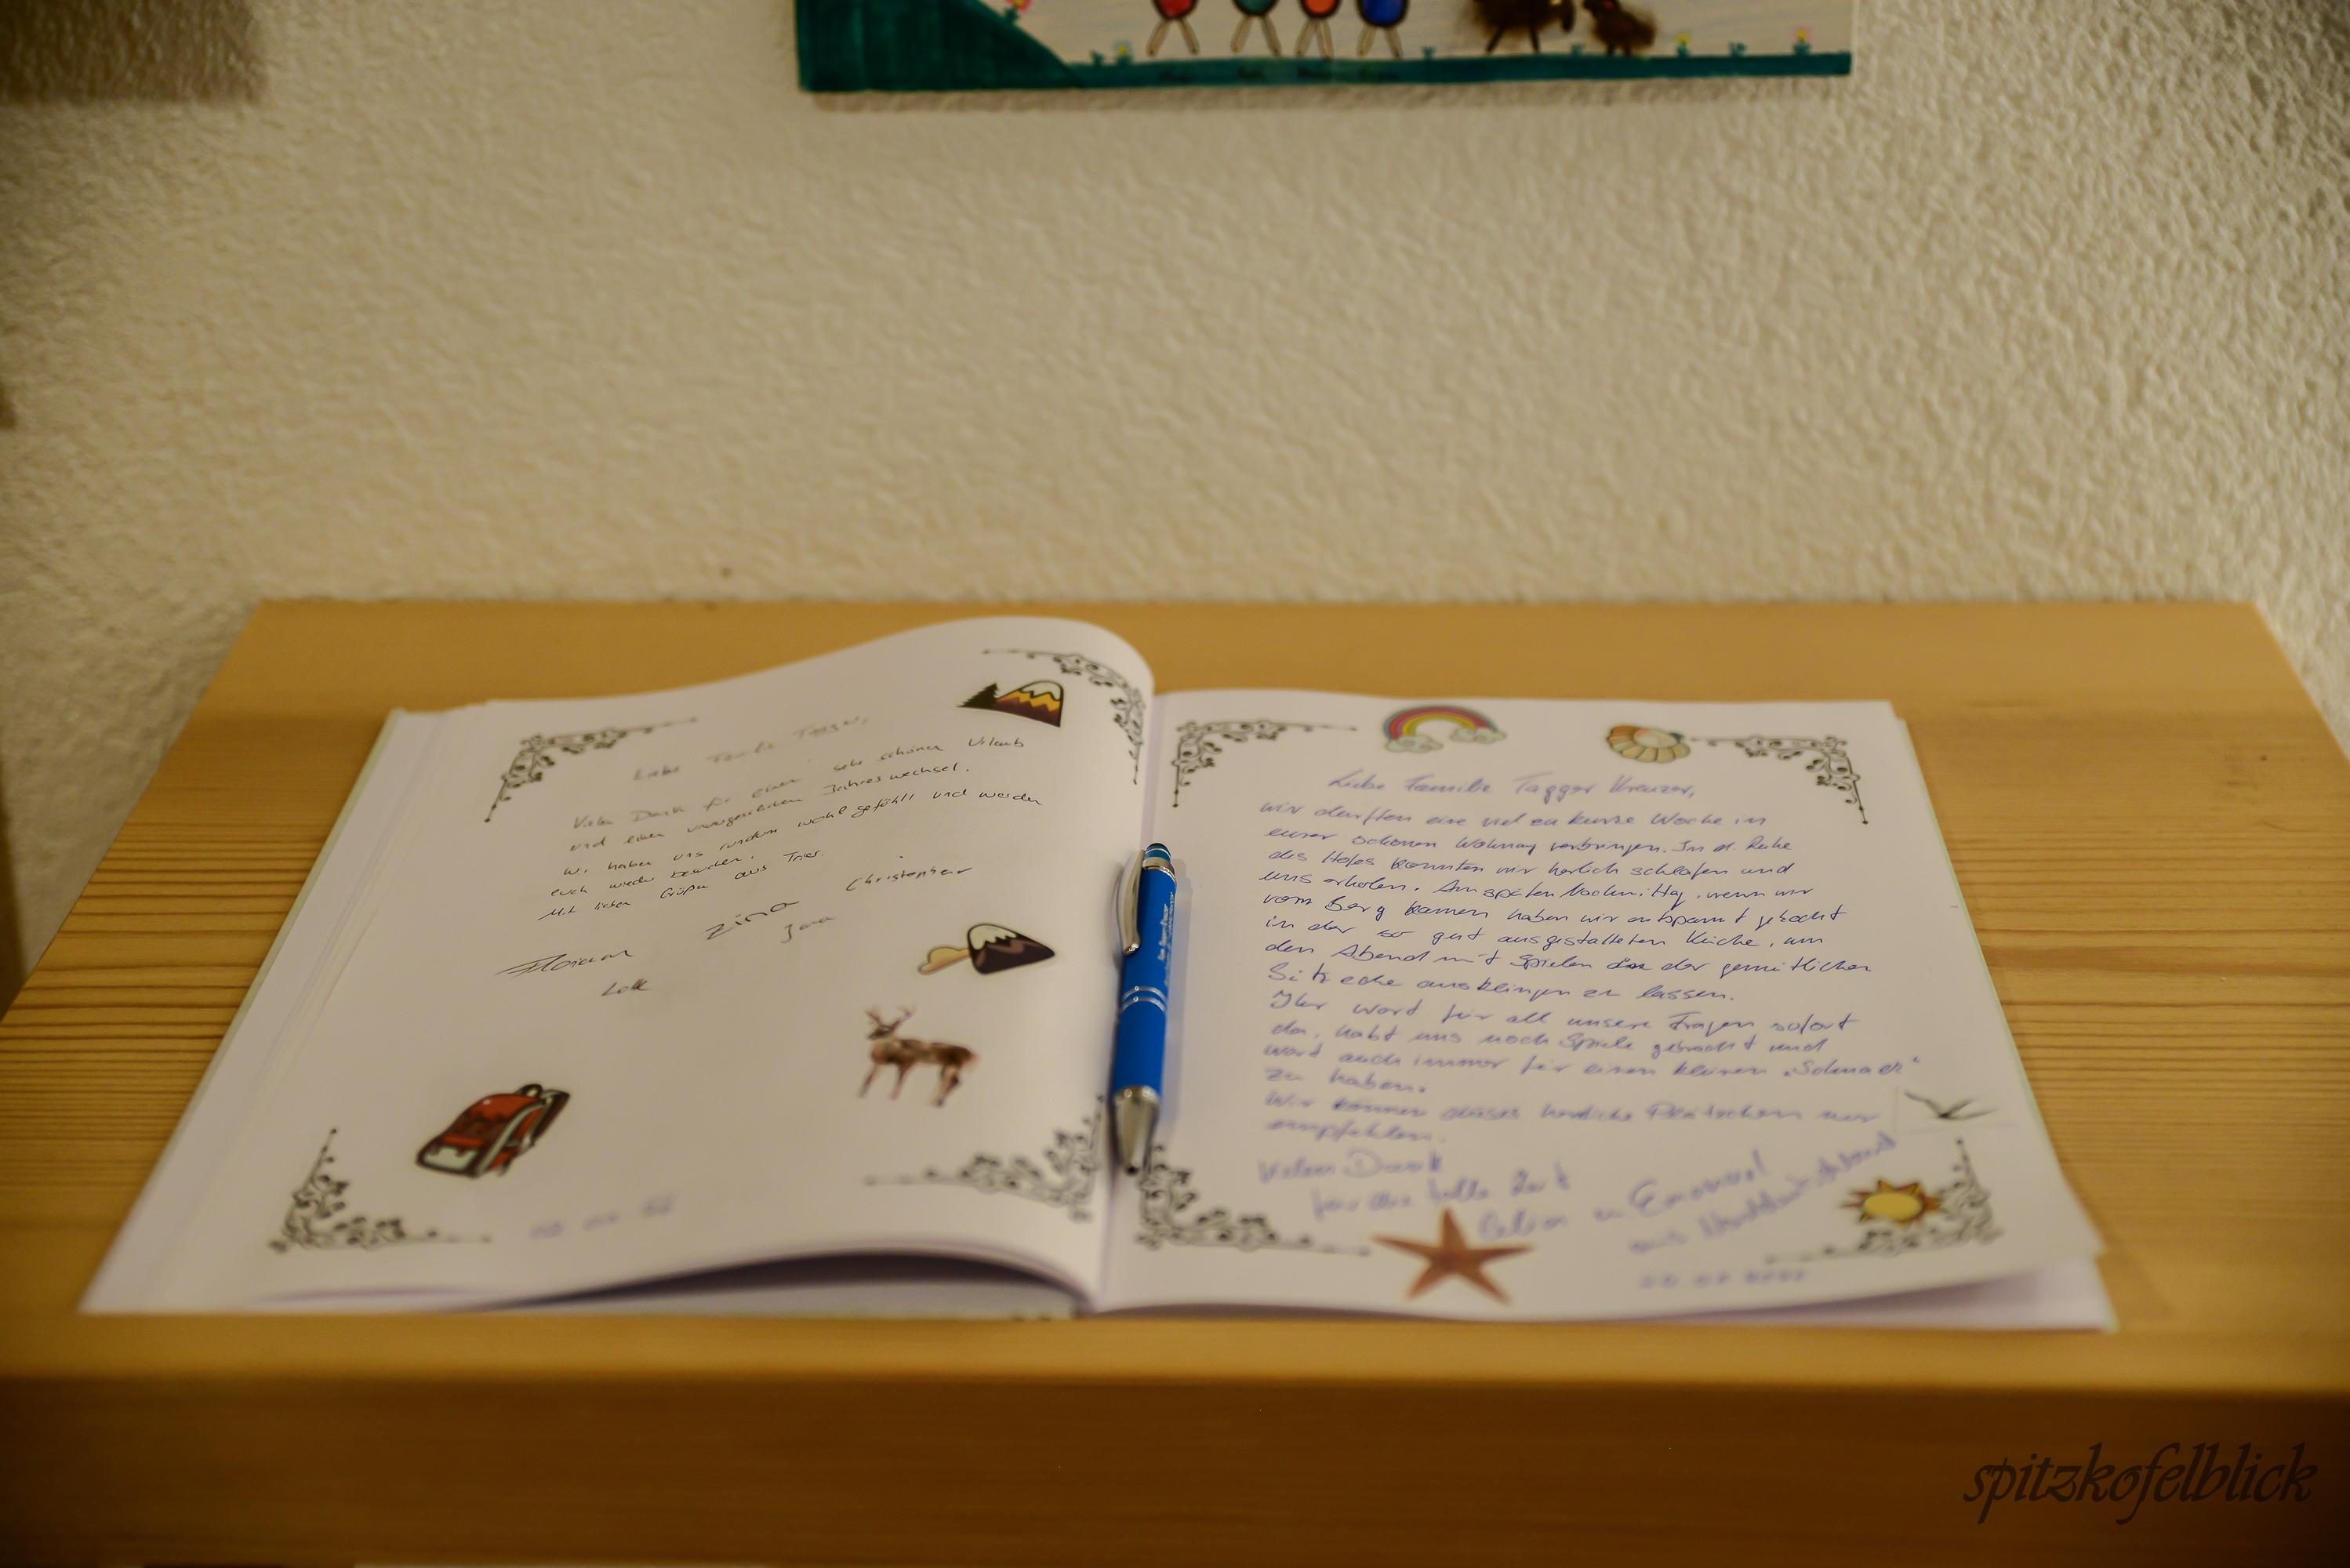 Liebe Familie Tagger,
Vielen Dank für einen sehr schönen Urlaub
und einen unvergesslichen Jahreswechsel.
Wir haben uns rundum wohl gefühlt und werden
euch wieder besuchen.
Mit lieben Grüßen aus Trier.
Christopher
Zina
Jana
Florian
Liebe Familie Tagger Kreuzer,
wir durften eine viel zu kurze Woche in
eurer schönen Wohnung verbringen. In d. Ruhe
des Hofes konnten wir herlich schlafen und
uns erholen. Am späten Nachmittag, wenn wir
vom Berg kamen haben wir entspannt gekocht
in der so gut ausgestalteten Küche, um
den Abend mit Spielen in der gemütlichen
Sitzecke ausklingen zu lassen.
Ihr wart für all unsere Fragen sofort
da, habt uns noch Spiele gebracht und
wart auch immer für einen kleinen „Schnack“
zu haben.
Wir können dieses herrliche Plätzchen nur
empfehlen.
Vielen Dank
für die tolle Zeit
spitzkofelblick